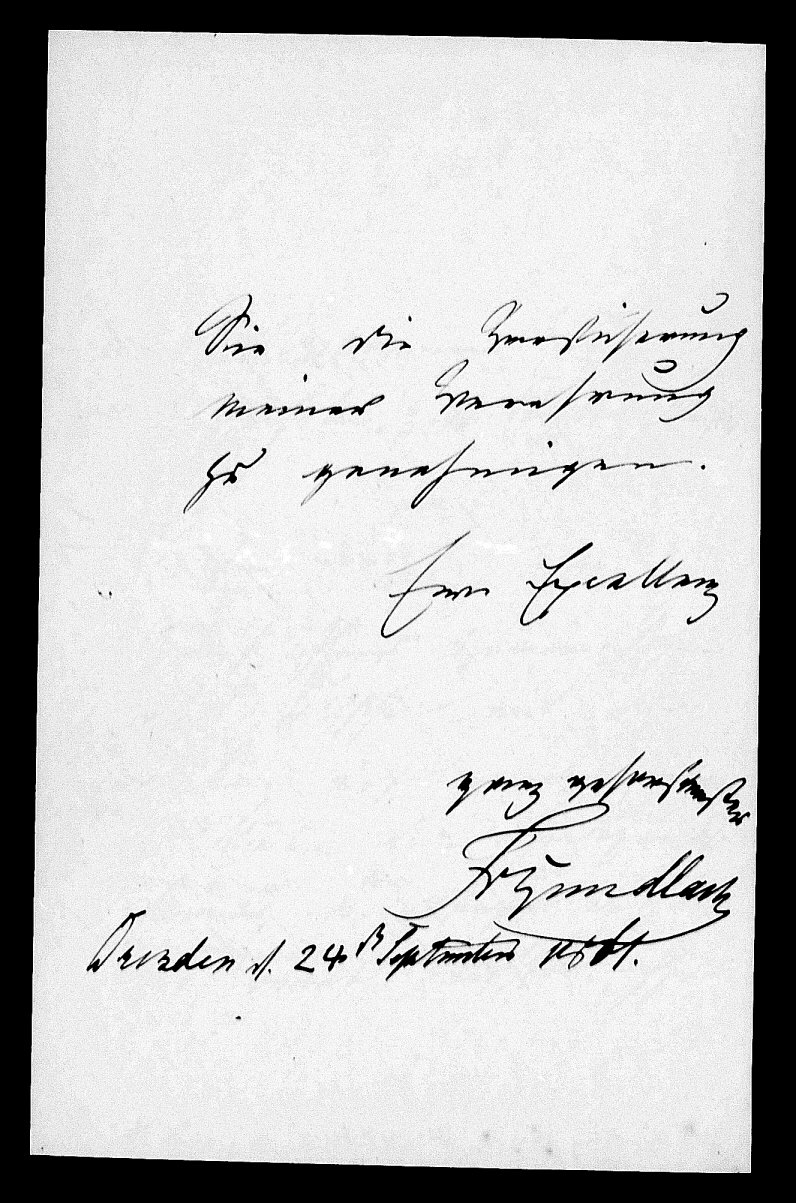 Sie die Versicherung
meiner Verehrung
zu genehmigen.
Ew. Excellenz
ganz gehorsamster
Dresden d. 24. September 1861.